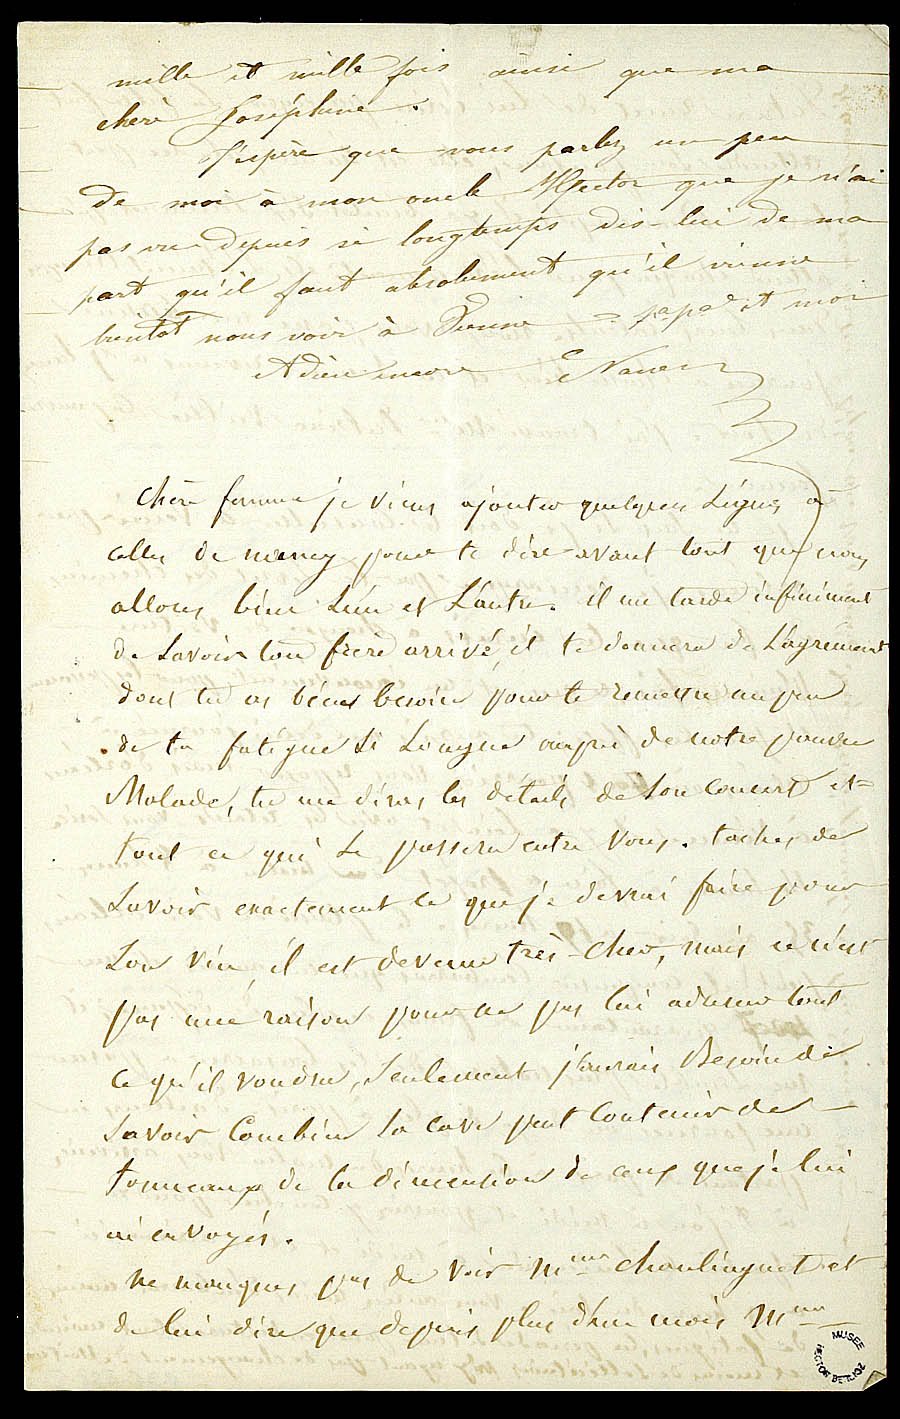 mille et mille fois ainsi que ma
chère Joséphine.
J'espère que vous parlez un peu
de moi à mon oncle Hector que je n'ai
pas vu depuis si longtemps dis-lui de ma
part qu'il faut absolument qu'il vienne
bientôt nous voir à Vienne = papa et moi
Adieu encore Nancy
Chère femme je viens ajouter quelques lignes à
celles de nancy pour te dire avant tout que nous
allons bien l'un et l'autre. il me tarde infiniment
de savoir ton frère arrivé, il te donnera de l'agrément
dont tu as bien besoin pour te remettre un peu
de ta fatigue si longue auprè de notre pauvre
Malade, tu me diras les détails de son concert et
tout ce qui se passera entre vous. taches de
savoir exactement ce que je devrai faire pour
son vin, il est devenu très-cher, mais ce n'est
pas une raison pour ne pas lui adresser tout
ce qu'il voudra, seulement j'aurais Besoin de
savoir Combien la cave peut Contenir de
tonneaux de la dimention de ceux que je lui
ai envoyés.
ne manques pas de voir Mme Chanlinguet et
de lui dire que depuis plus d'un mois Mme
MUSEE
HECTOR BERLIOZ